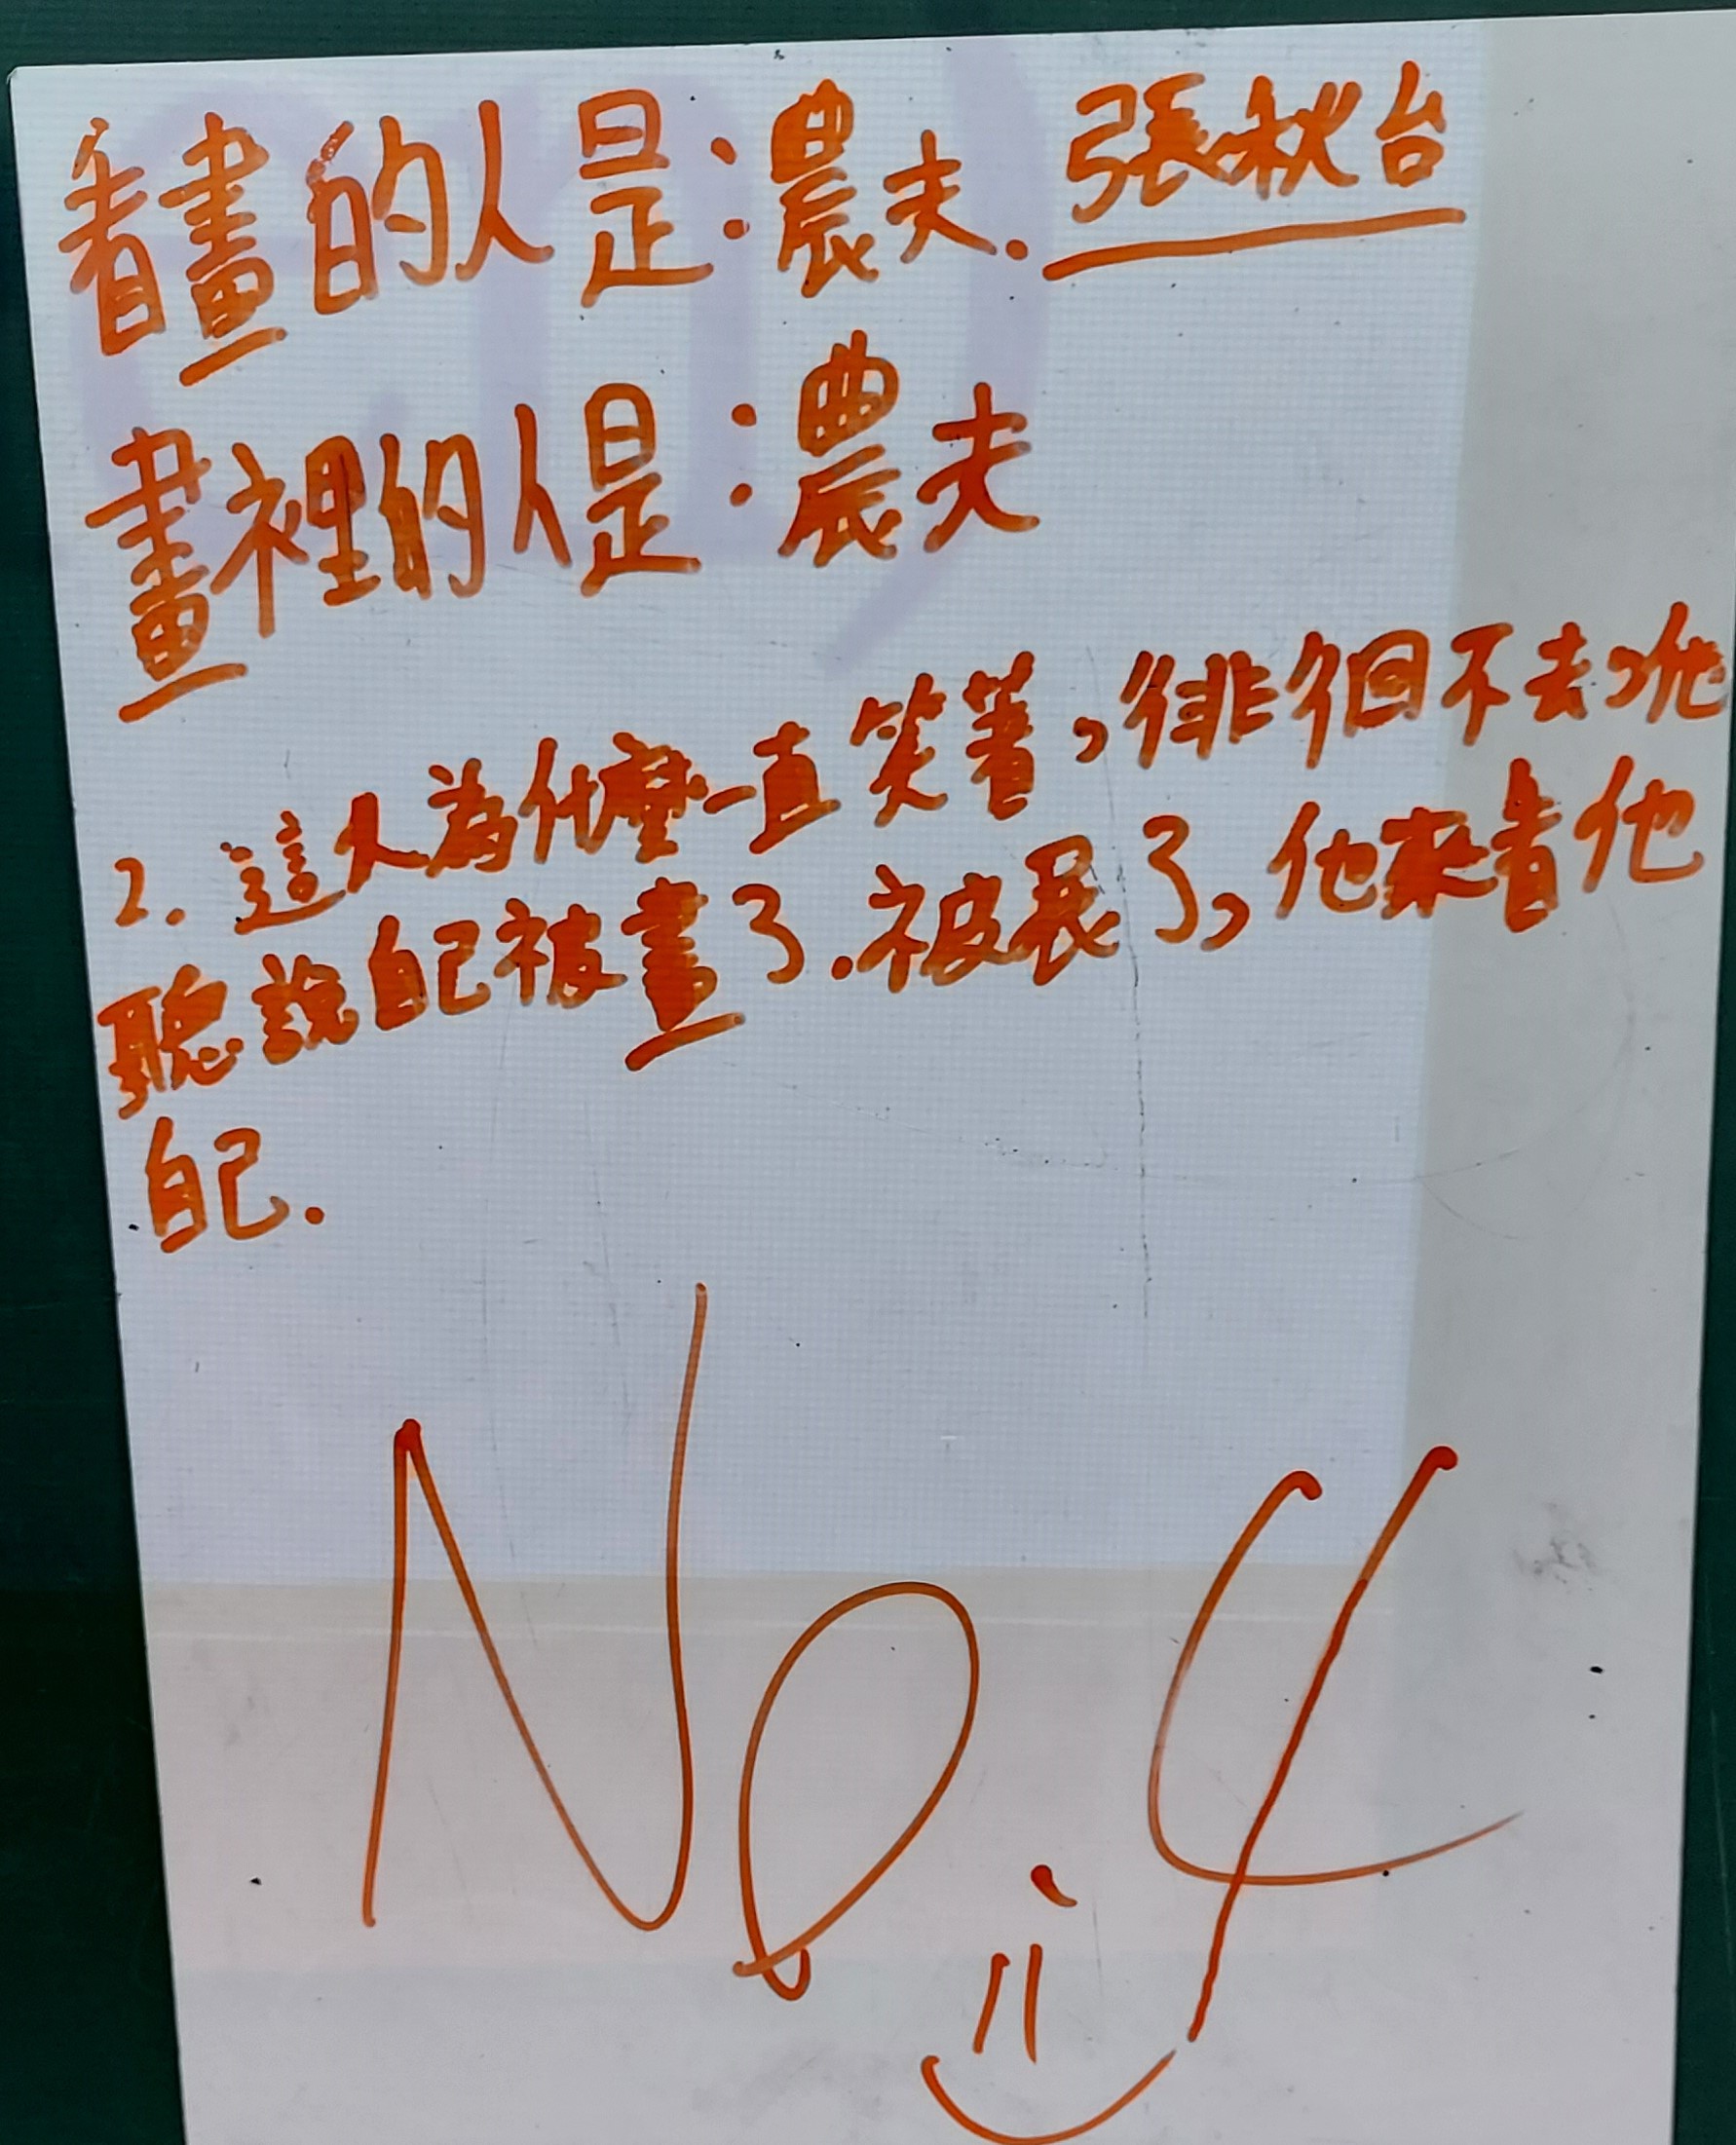 看畫的人是：農夫．張秋台
畫裡的人是：農夫
2．這人為什麼一直笑著，徘徊不去，他
聽說自己被畫了．被展了，他來看他
自己．